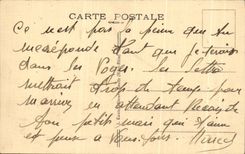 CARTE POSTALE
Ce n'est pas la peine que tu
me réponde tant que je serais
dans les Vosges les lettres
mettrait trop de temps pour
m'arriver en attendant
ton petit mari que t'aime
et pense à